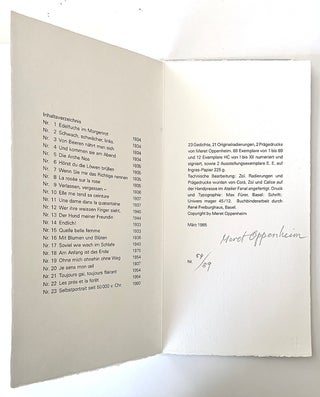 Inhaltsverzeichnis
Nr. 1 Edelfuchs im Morgenrot 1934
Nr. 2 Schwach, schwächer, links. 1934
Nr. 3 Von Beeren nährt man sich
Nr. 4 Und kommen sie am Abend
Nr. 5 Die Arche Noe
Nr. 6 Hörst du die Löwen brüllen
Nr. 7 Wenn Sie mir das Richtige nennen
Nr. 8 La rosée sur la rose
Nr. 9 Verlassen, vergessen –
Nr. 10 Elle me tend sa ceinture
Nr. 11 Une dame dans la quarantaine
Nr. 12 Wer ihre weissen Finger sieht,
Nr. 13 Der Hand meiner Freundin
Nr. 14 Endlich!
Nr. 15 Quelle belle femme
Nr. 16 Mit Blumen und Blüten
Nr. 17 Soviel wie wach im Schlafe
Nr. 18 Am Anfang ist das Ende
Nr. 19 Ohne mich ohnehin ohne Weg
Nr. 20 Je sens mon œil
Nr. 21 Toujours gai, toujours flairant
Nr. 22 Les prés et la forêt
Nr. 23 Selbstportrait seit 50.000 v. Chr. 1980
23 Gedichte, 21 Originalradierungen, 2 Prägedrucke
von Meret Oppenheim. 89 Exemplare von 1 bis 89
und 12 Exemplare HC von I bis XII numeriert und
signiert, sowie 2 Ausstellungsexemplare E. E. auf
Ingres-Papier 225 g.
Technische Bearbeitung: Zoi. Radierungen und
Prägedrucke wurden von Gots, Zoi und Calice auf
der Handpresse im Atelier Fanal angefertigt. Druck
und Typographie: Max Fürer, Basel; Schrift:
Univers mager 45/12. Buchbinderarbeit durch
René Freiburghaus, Basel.
Copyright by Meret Oppenheim
März 1985
Meret Oppenheim
Nr. /89